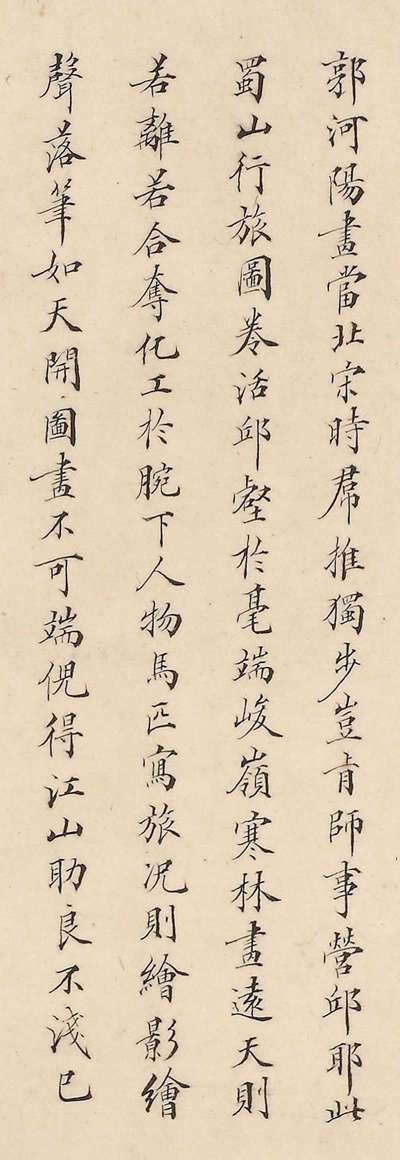 郭河陽畫當北宋時羣推獨步豈肯師事營邱耶此
蜀山行旅圖卷活邱壑於毫端峻嶺寒林畫遠天則
若離若合奪化工於腕下人物馬匹寫旅況則繪影繪
聲落筆如天開圖畫不可端倪得江山助良不淺已